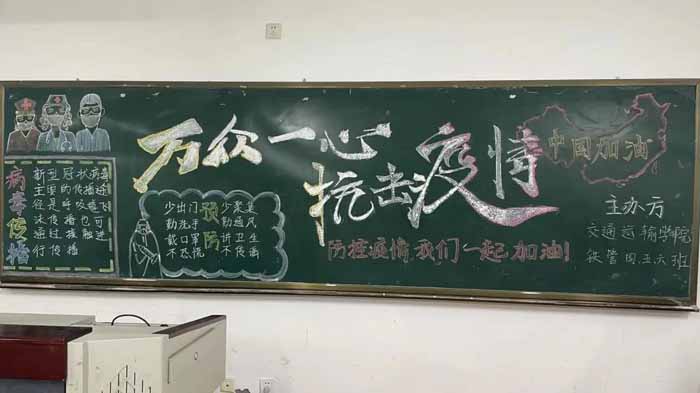 病毒传播
新型冠状病毒
主要的传播途
径是呼吸道飞
沫传播也可
通过接触进
行传播
万众一心
抗击疫情
预防
少出门 少聚集
勤洗手 勤通风
戴口罩 讲卫生
不恐慌 不传谣
防控疫情,我们一起加油!
中国加油
主办方
交通运输学院